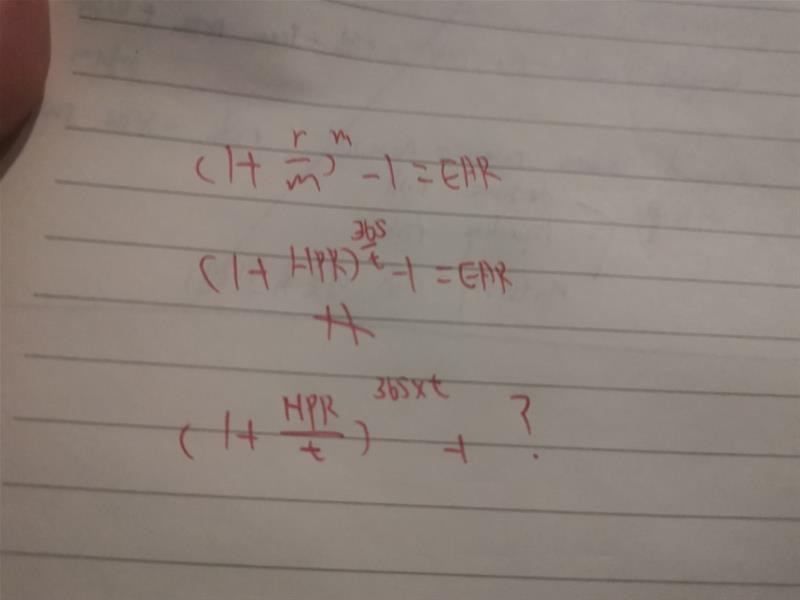 (1+ r/m)^m -1 = EAR
(1+ HPR)^365/t -1 = EAR
(1+ HPR/t)^365xt -1 ?